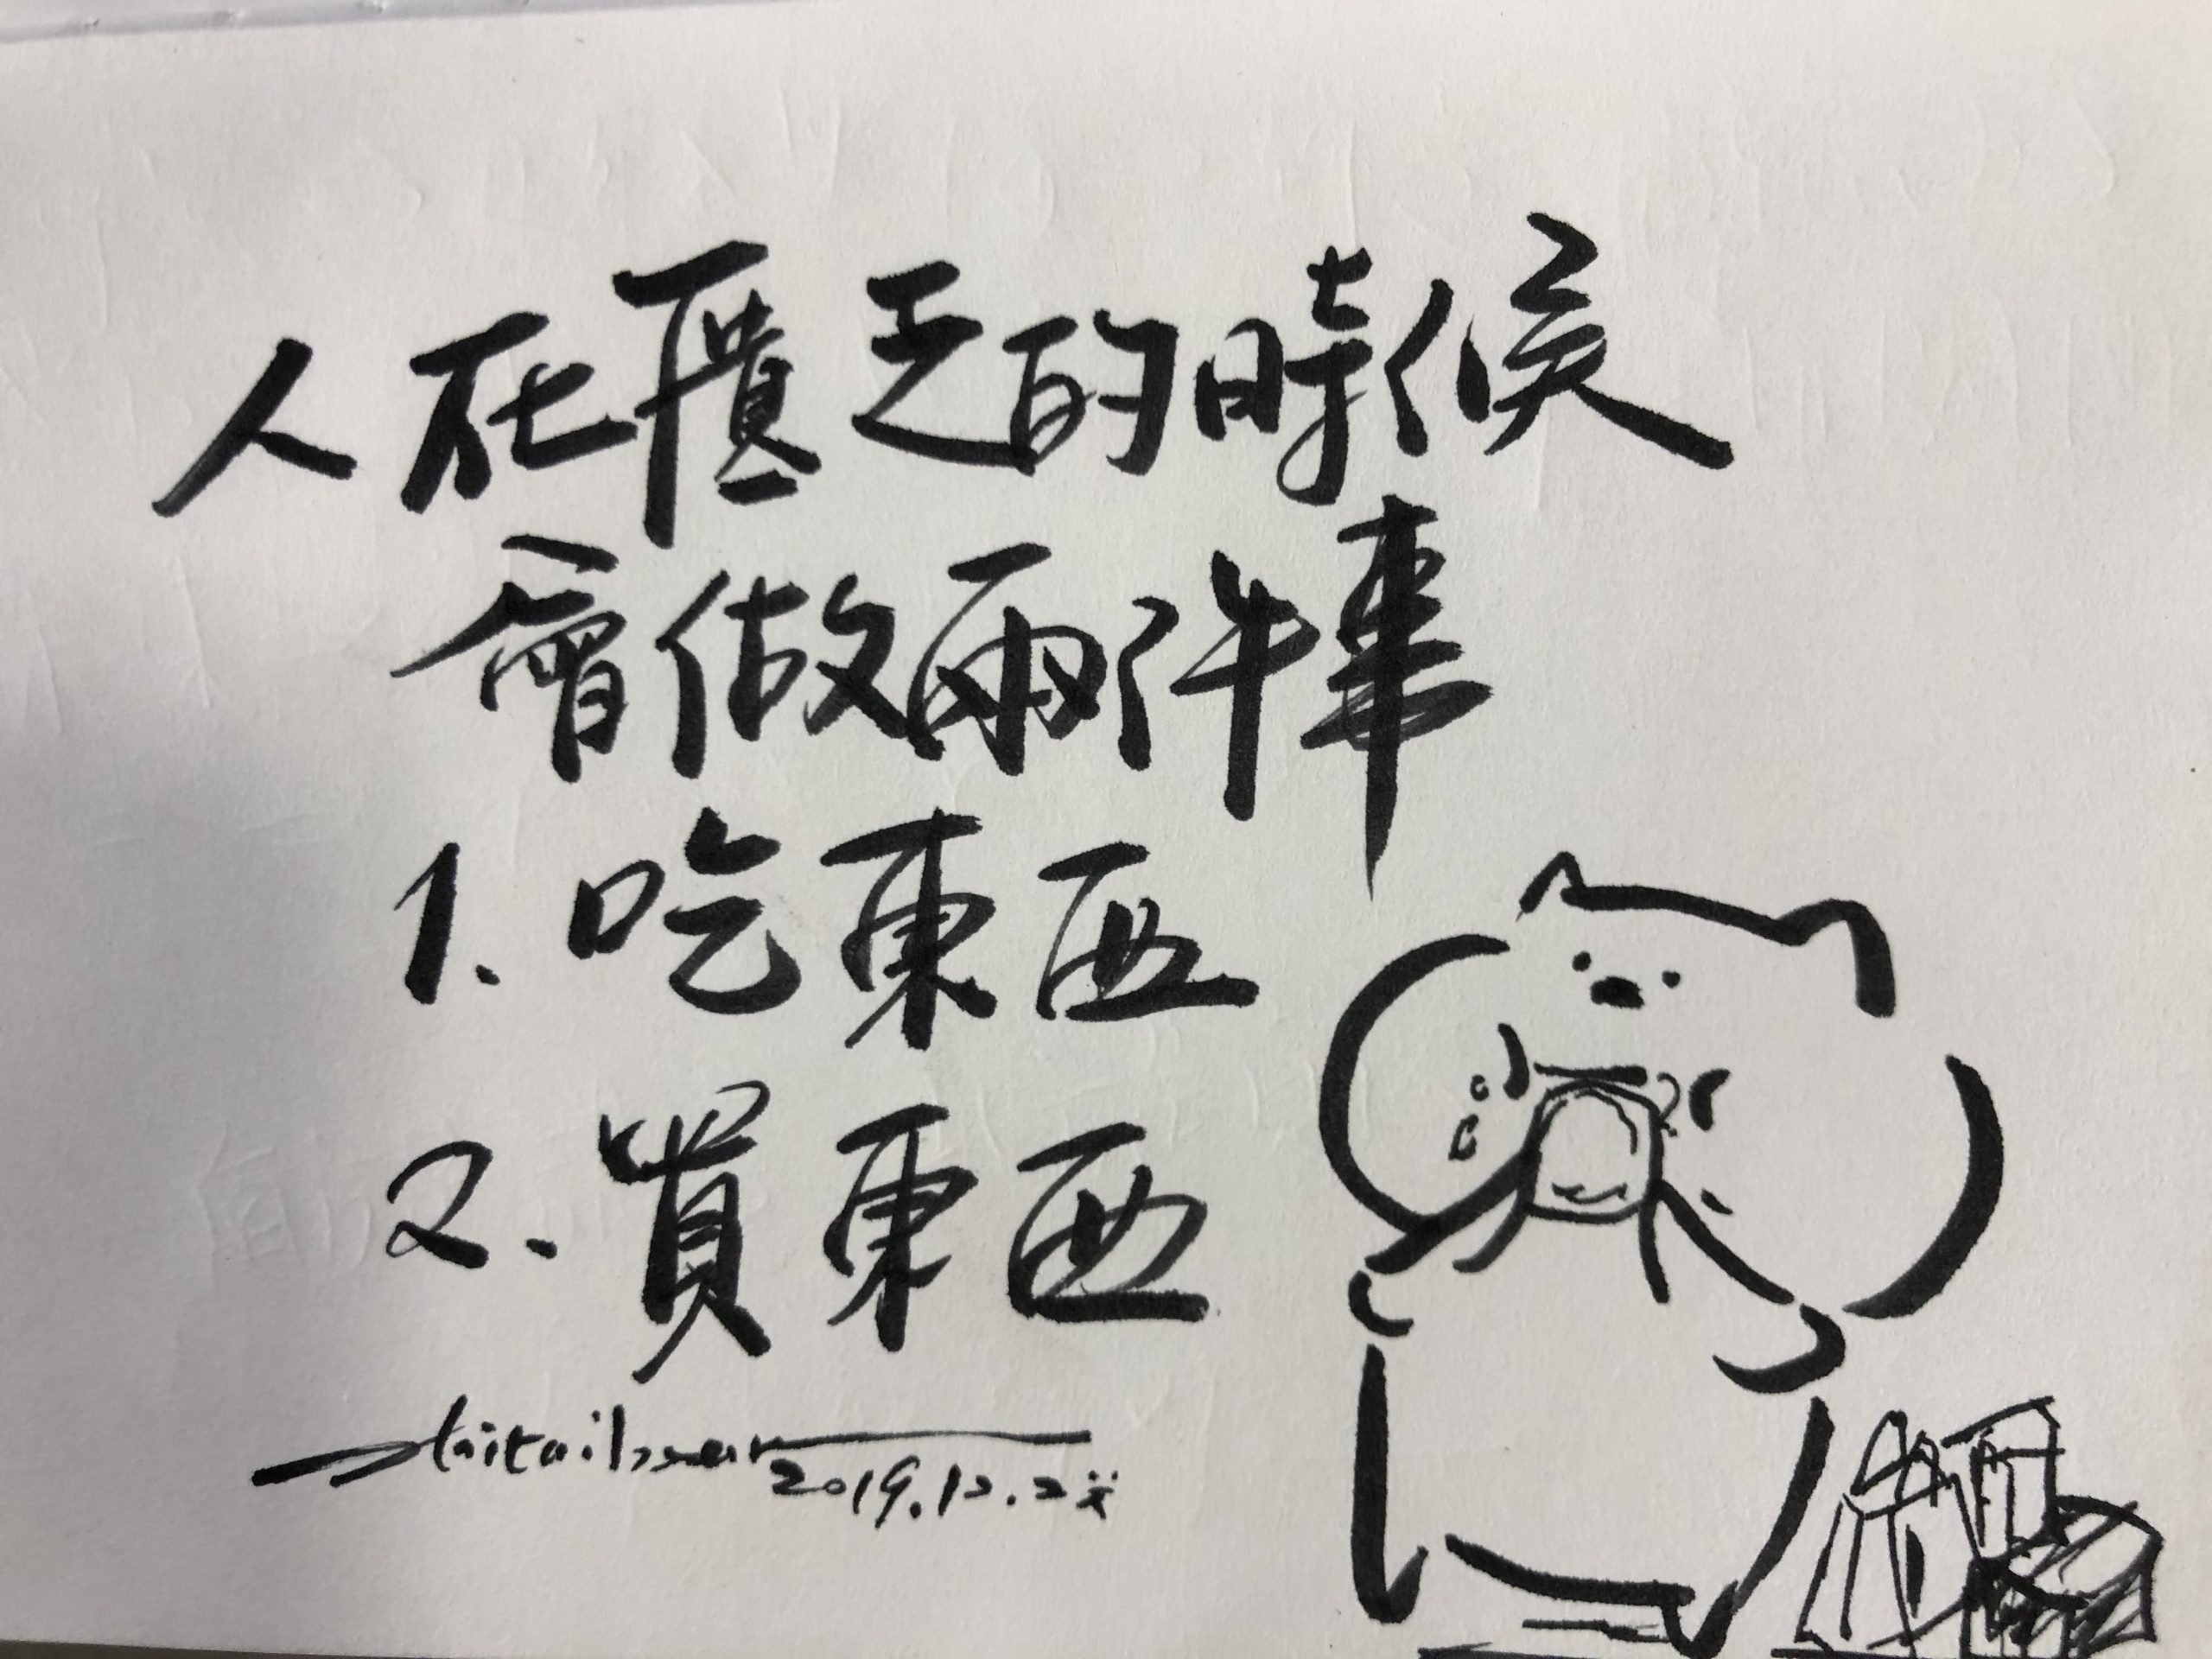 人在匱乏的時候
會做兩件事
1. 吃東西
2. 買東西
taitaibear
2019.12.2